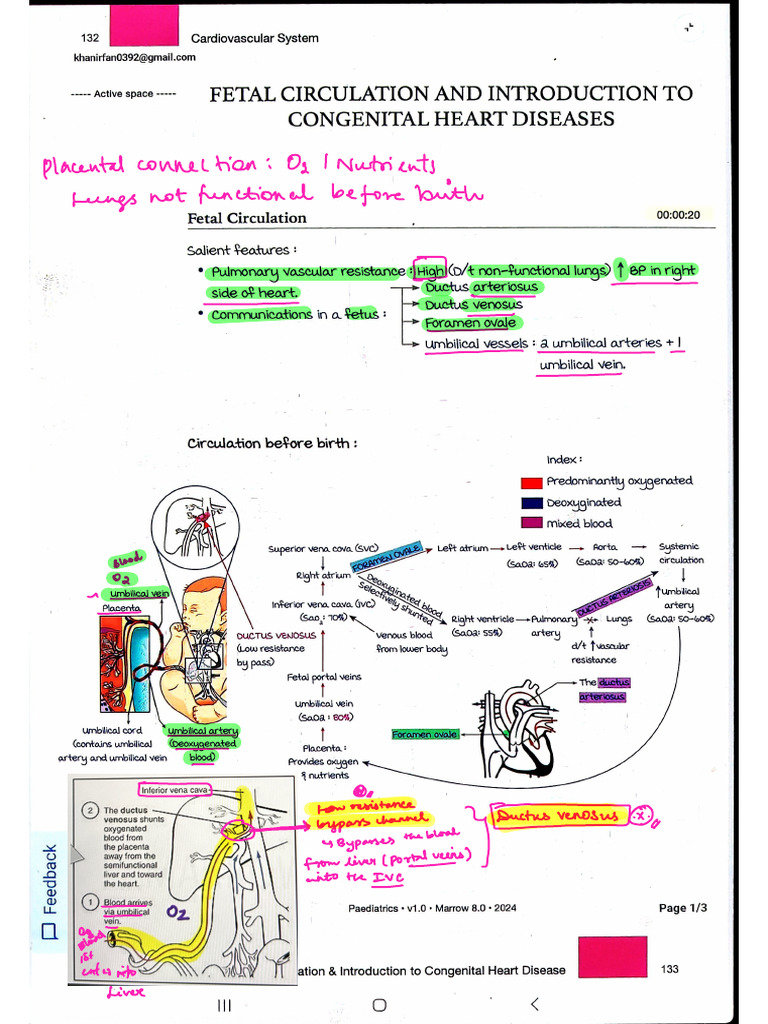 132
Cardiovascular System
khanirfan0392@gmail.com
----- Active space -----
FETAL CIRCULATION AND INTRODUCTION TO
CONGENITAL HEART DISEASES
Placental connection : O2 / Nutrients
Lungs not functional before birth
Fetal Circulation
00:00:20
Salient features :
• Pulmonary vascular resistance : High (D/t non-functional lungs) ↑ BP in right
side of heart.
• Communications in a fetus :
Ductus arteriosus
Ductus venosus
Foramen ovale
Umbilical vessels : 2 umbilical arteries + 1
umbilical vein.
Circulation before birth :
Index :
Predominantly oxygenated
Deoxyginated
mixed blood
Blood
O2
Umbilical vein
Placenta
Umbilical cord
(contains umbilical
artery and umbilical vein
Umbilical artery
(Deoxygenated
blood)
DUCTUS VENOSUS
(Low resistance
by pass)
Superior vena cava (SVC)
Right atrium
Inferior vena cava (IVC)
(SaO2 : 70%)
Fetal portal veins
Umbilical vein
(SaO2 : 80%)
Placenta :
Provides oxygen
& nutrients
FORAMEN OVALE
Left atrium
Left venticle
(SaO2: 65%)
Aorta
(SaO2: 50-60%)
Systemic
circulation
Umbilical
artery
(SaO2: 50-60%)
Deoxuginated blood
Selectively shunted
Venous blood
from lower body
Right ventricle
(SaO2: 55%)
Pulmonary
artery
-x-
Lungs
d/t ↑ vascular
resistance
DUCTUS ARTERIOSIS
The ductus
arteriosus
Foramen ovale
Inferior vena cava
2 The ductus
venosus shunts
oxygenated
blood from
the placenta
away from the
semifunctional
liver and toward
the heart.
1 Blood arrives
via umbilical
vein.
O2
O2
Blood
1st
into
Liver
Low resistance
bypass channel
↳ Bypasses the blood
from liver (portal veins)
into the IVC
Ductus venosus
Paediatrics • v1.0 • Marrow 8.0 • 2024
Page 1/3
Feedback
ation & Introduction to Congenital Heart Disease
133